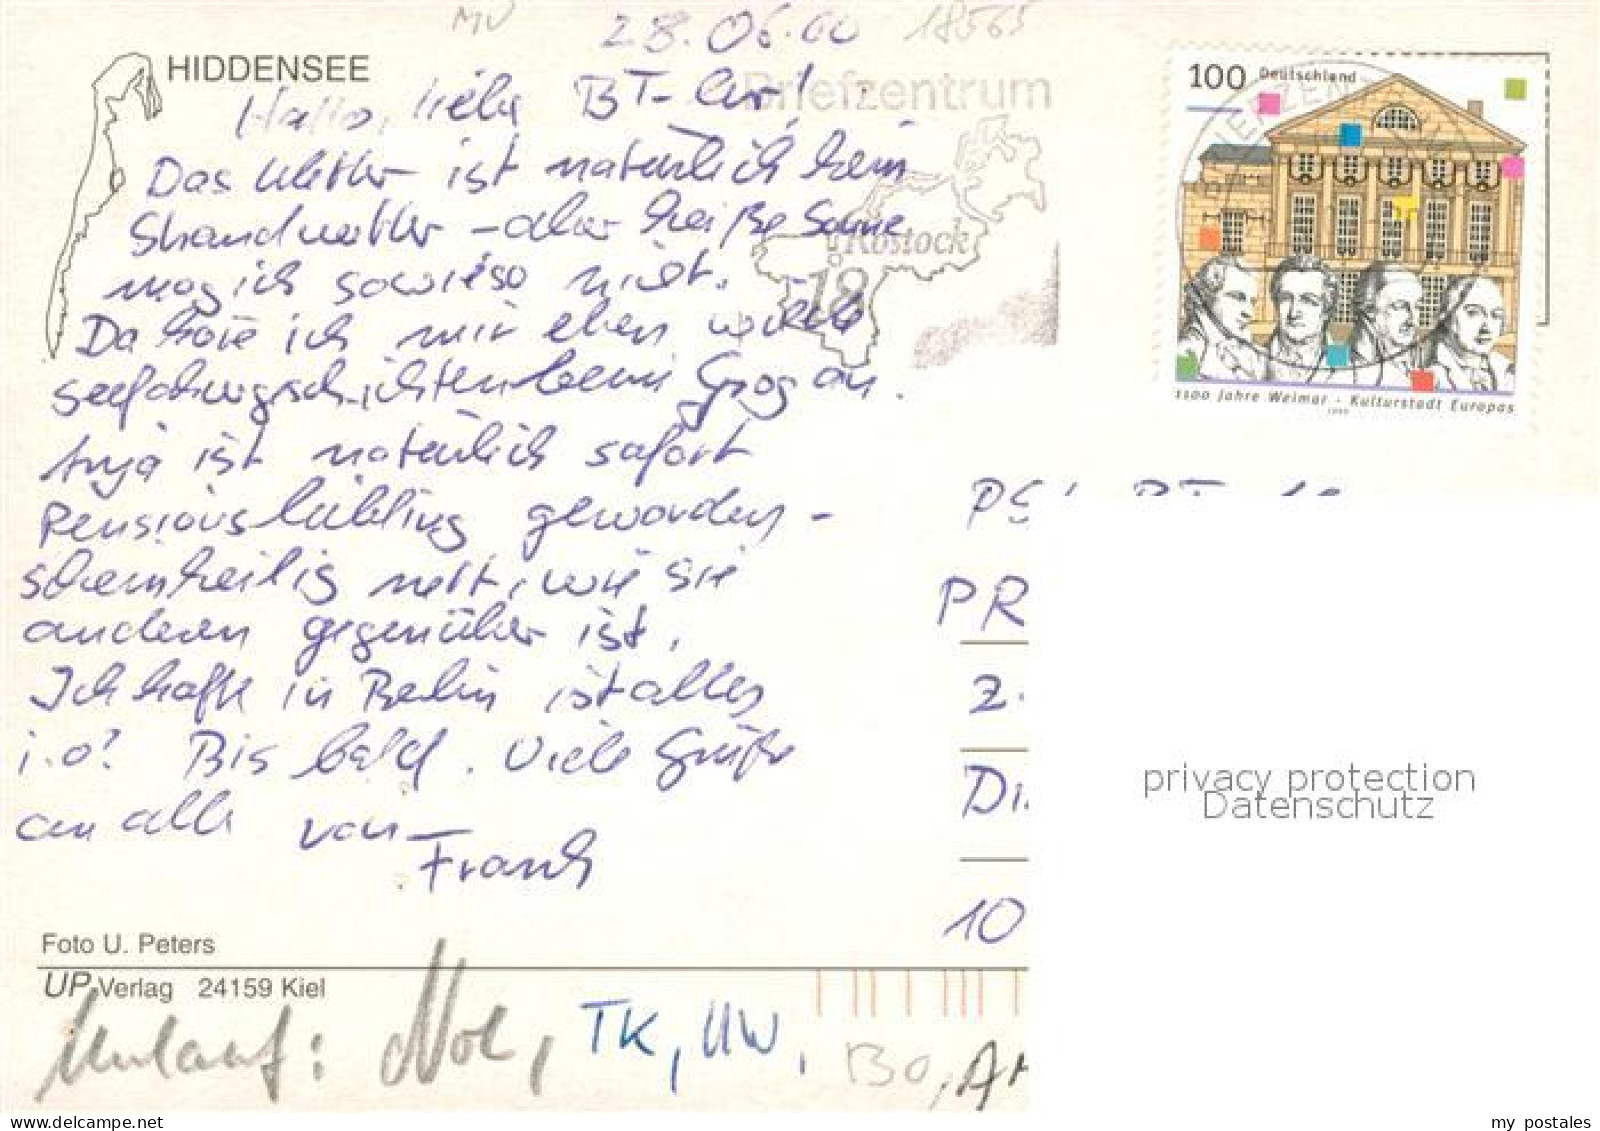 MV
28.06.00
18565
HIDDENSEE
Hallo, liebe BT-ler!
Briefzentrum
Das Wetter ist natürlich kein
Strandwetter - aber heiße Sonne
mag ich sowieso nicht.
Rostock
18
Da höre ich mir eben wilde
Seefahrergeschichten beim Grog an.
Anja ist natürlich sofort
Pensionsliebling geworden -
scheinheilig nett, wie sie
anderen gegenüber ist.
Ich hoffe in Berlin ist alles
i.o.? Bis bald. Viele Grüße
an alle von
Frank
100 Deutschland
1100 Jahre Weimar - Kulturstadt Europas
1999
PR
2.
Di
10
privacy protection
Datenschutz
Foto U. Peters
UP Verlag 24159 Kiel
Umlauf: TK, UW,
my postales